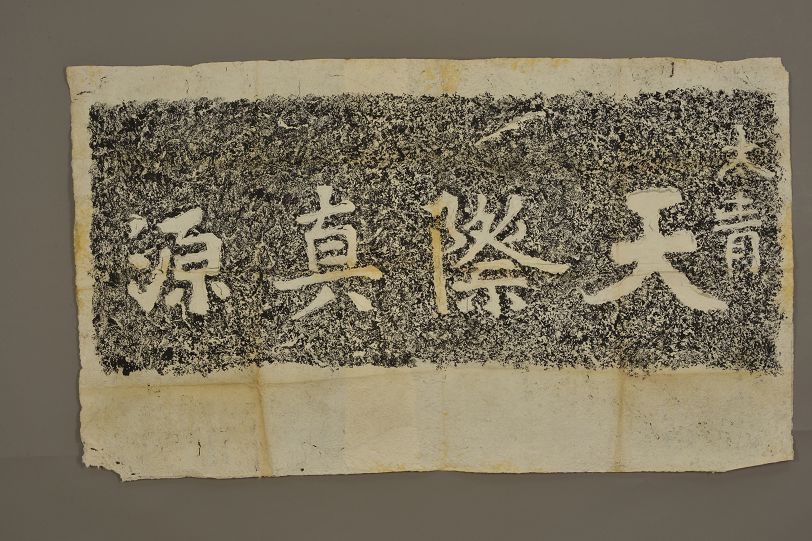 大青
天際真源